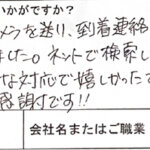 いかがですか?
メラを送り、到着連絡
ました。ネットで検索し
な対応で嬉しかったで
感謝です!!
会社名またはご職業